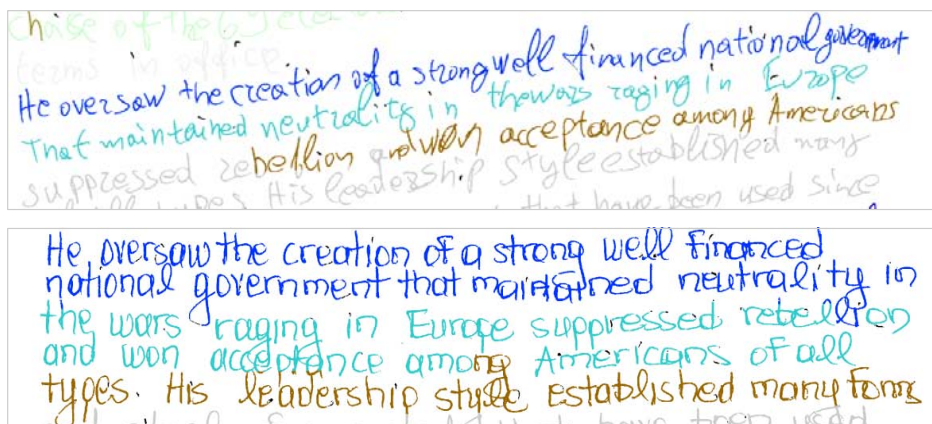 choise of the 6
terms in office
He oversaw the creation of a strong well financed national government
That maintained neutrality in the wars raging in Europe
suppressed rebellion and won acceptance among Americans
types His leadership style established many
that have been used since
He oversaw the creation of a strong well financed
national government that maintained neutrality in
the wars raging in Europe suppressed rebellion
and won acceptance among Americans of all
types. His leadership style established many forms
have been used